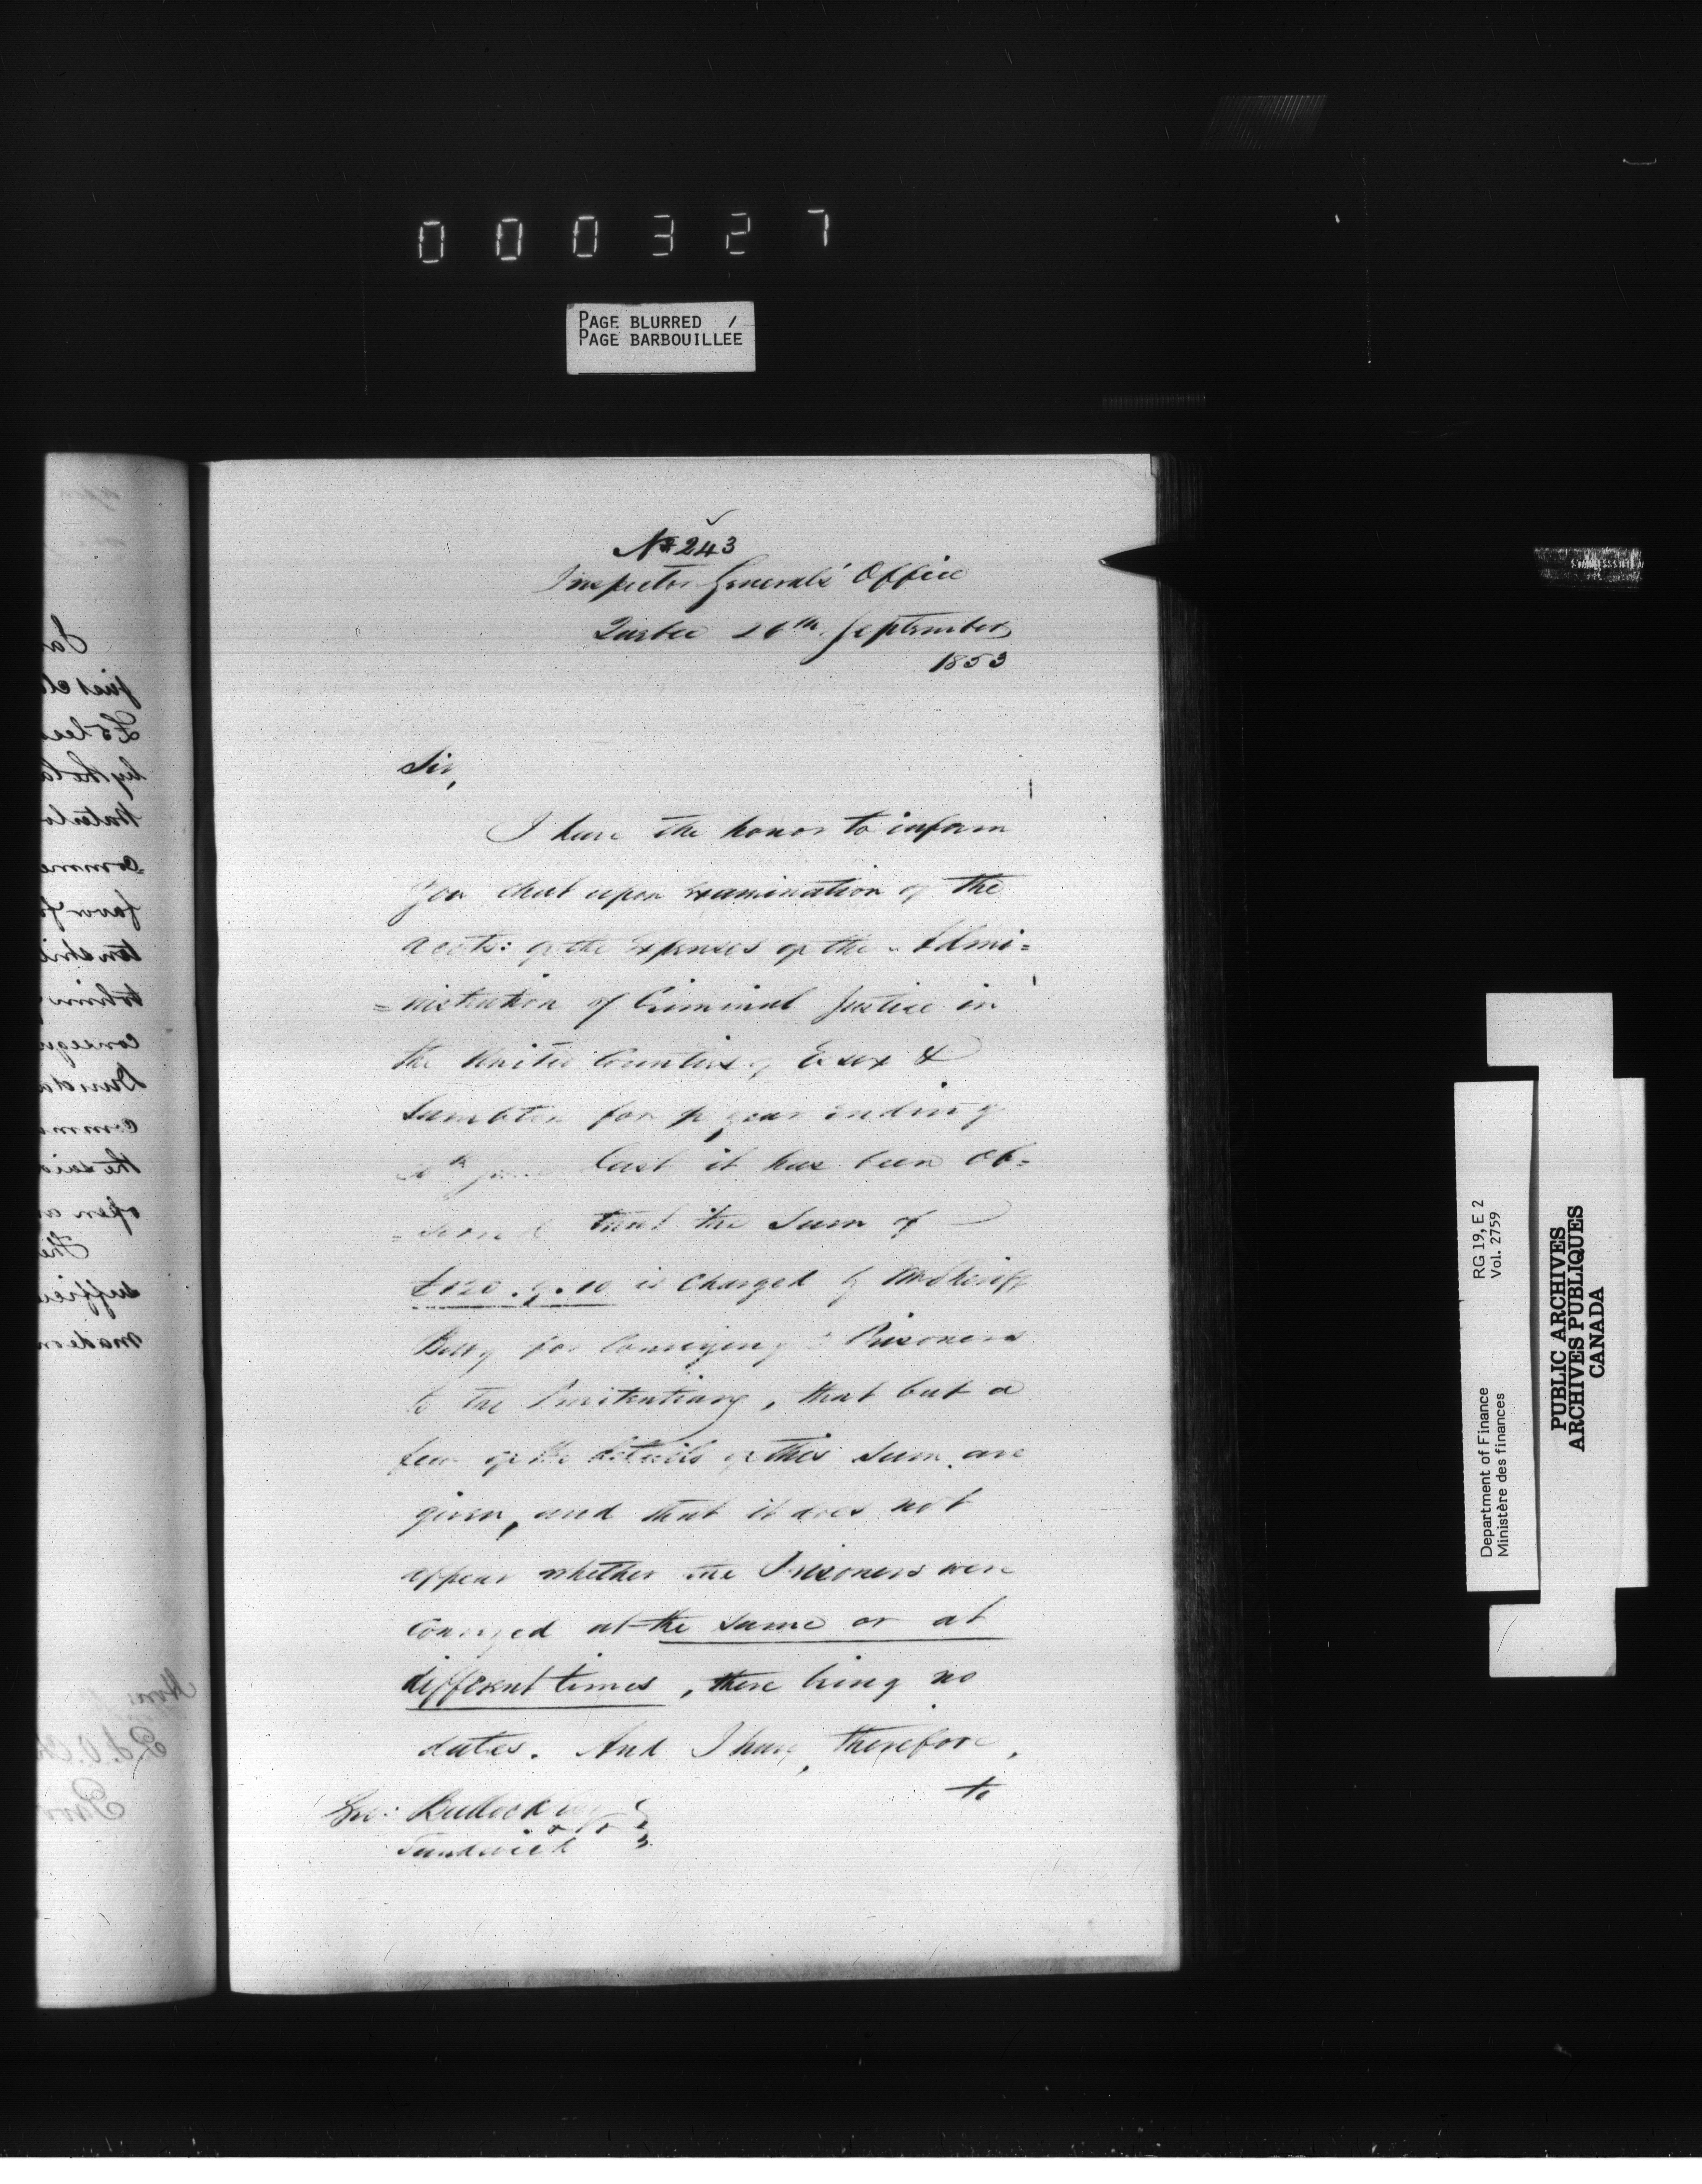 000327
PAGE BLURRED /
PAGE BARBOUILLÉE
No 243
Inspector Generals' Office
Quebec 26th September
1853
Sir,
I have the honor to inform
you that upon examination of the
accts: of the Expenses of the Admi=
=nistration of Criminal Justice in
the United Counties of Essex &
Lambton for year ending
last it has been Ob=
=served that the Sum of
is Charged by Mr Sheriff
for Conveying Prisoners
to the Penitentiary, that but a
few of the details of this Sum are
given, and that it does not
appear whether the Prisoners were
Conveyed at the same or at
different times, there being no
dates. And I have, therefore,
to
Geo: Bullock
Sandwich
RG 19, E 2
Vol. 2759
Department of Finance
Ministère des finances
PUBLIC ARCHIVES
ARCHIVES PUBLIQUES
CANADA